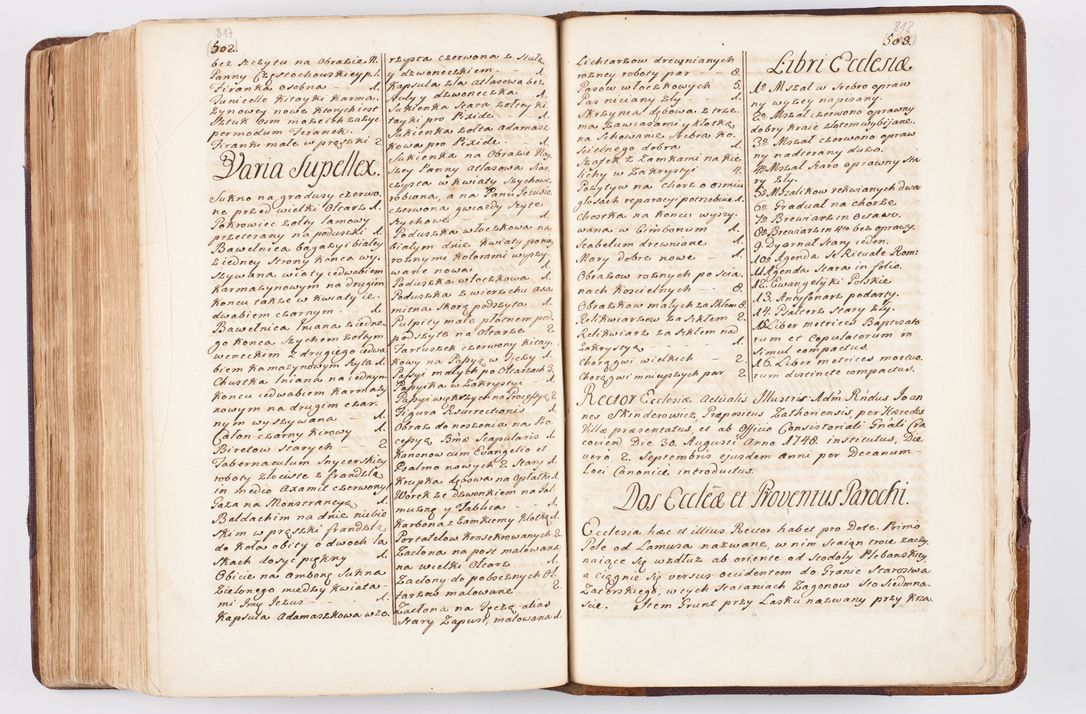 817
502.
bez szczytu na Obrazie N.
Panny Częstochowskiey p. 1.
Firanka osobna - 1.
Tunicelle Kitayki Karma-
zynowey nowe Ktorych iest
Sztuk
per modum Firanek.
Firanki małe w prążki 2
Varia Supellex.
Sukno na gradusy czerwo-
ne przed wielki Ołtarz 1.
Pokrowiec zołty lamowy
przeterany na poduszki 1.
Bawełnica bagazyi białey
z iedney strony Konca wy-
szywana wiaty iedwabiem
Karmazynowym na drugim
Koncu także w Kwiaty ie-
dwabiem czarnym - 1.
Bawełnica lniana z iedne-
go Konca szychem zołtym
weneckim z drugiego iedwa
biem Kamazynowym szyta 1.
Chustka lniana na iednym
Koncu iedwabiem Karmazy
nowym na drugim czar-
nym wyszywana - 1.
Całon czarny Kirowy 1.
Biretow starych - 2.
Tabernaculum Snycerskiey
roboty złociste z frandzlą
in medio Axamit czerwony 1
Gaza na Monstrancyą 1.
Baldachim na dnie niebie
skim w prążki frandzlą
do Koła obity o dwoch la
skach dosyc piękny 1.
Obicie na Ambonę Sukna
Zielonego między Kwiata-
mi Imię Jezus - 1.
Kapsuła Adamaszkowa wzo.
rzysta czerwona z Stułą
y dzwoneczkiem. 1.
Kapsuła zła Atłasowa bez
stuły y dzwoneczka 1.
Sukienka Stara zołtey ki
tayki pro Pixide. 1.
Sukienka zołta adamasz
kowa pro Pixide - 1.
Sukienka na Obrazie Nay
szey Panny Atłasowa Siar
czysta w Kwiaty szychowe
robiona, a na Panu Jezusie
czerwona gwiazdy szyte
szychowe - 1.
Poduszka włoczkowa na
białym dnie Kwiaty poma
rosnymi Kolorami wyszy
wane nowa. 1.
Poduszka włoczkowa 1.
Poduszka z wierzchu axa
mitna skorą podszyta 1.
Pulpity małe płotnem pod
podszyte na Ołtarze 2.
Fartuszek czerwony kitay
kowy na Passyą w Tęczy 1.
Passyi małych po Ołtarzach 3.
Passyika w Zakrystyi - 1.
Passyi większych na Procesyą 2
Figura Resurrectionis 1.
Obraz do noszenia na Pro
cesyą Bmæ Scapularis 1.
Kanonow cum Evangelio et
Psalmo nowych 2 Stary 1.
Kruszka dębowa na Opłatki 1.
Worek ze dzwonkiem na Jał
mużnę y Tablica - 1.
Karbona z Zamkiemy Kłotką 1.
Portatelow Konsekrowanych 2
Zasłona na post malowana
na wielki Ołtarz - 1.
Zasłony do pobocznych Oł
tarzow malowane 2.
Zasłona na Tęczą alias
Stary Zapust, malowana 1.
818
503.
Lichtarzow drewnianych
rozney roboty par - 8.
Pasow włoczkowych 5.
Pas niciany zły. - 1.
Skrzynia dębowa z trze
ma zawiasami y kłotką
na schowanie Aebra Ko
scielnego dobra - 1.
Szafek z Zamkami na Kie
lichy w Zakrystyi 4.
Pozytyw na Chorze o osmiu
głosach reparacyi potrzebuie 1.
Chostka na Koncu wyszy.
wana w Cimbonum 1.
Scabelum drewniane 1.
Mary dobre nowe - 1.
Obrazow roznych po Scia-
nach Koscielnych - 8.
Obrazkow małych za szkłem 8.
Relikwiarzow za szkłem 2.
Relikwiarz za szkłem na
Zakrystyą - 1.
Chorągwi wielkich - 2.
Chorągwi mnieyszych par 2.
Libri Ecclesiæ
1º Mszał w srebro opraw
ny wyzey napisany.
2º Mszał czerwono oprawny
dobry kraie złotem wybijane.
3º Mszał czerwono opraw
ny nadterany duzo.
4º Mszał staro oprawny Sta
ry zły.
5º Mszalikow rekwialnych dwa
6º Gradual na chorze
7º Brewiarz in Octavo.
8º Brewiarz in 4to bez oprawy.
9. Dyurnał Stary ieden.
10º Agenda Sc Rituale Rom.
11. Agenda Stara in folio.
12. Ewangelyki Polskie
13. Antyfonarz podarty.
14. Psałterz Stary zły.
15. Liber metrices Baptisato
rum et Copulatorum in
simul compactus.
16. Liber metrices mortuo.
rum distincte compactus.
Rector Ecclesiæ Actualis Illustris Adm Rndus Joan
nes Skinderowicz, Præpositus Zathoriensis, per Hæredes
Villæ præsentatus, et ab Officio Consistoriali Gnali Cra
covien Die 30. Augusti Anno 1748. institutus, Die
vero 2. Septembris ejusdem anni per Decanum-
Loci Canonice introductus.
Dos Eccleæ et Proventus Parochi.
Ecclesia hæc et illius Rector habet pro Dote. Primo
Pole od Lamusa nazwane, w nim Staiąn troie zaczy
naiące się wzdłuz ab oriente od Stodoły Plebanskiey
a ciągnie się versus occidentem do Granic Starostwa
Zatorskiego, w tych Staianiach Zagonow Sto Siedmna.
scie. Item Grunt przy Lasku nazwany przy Krza.